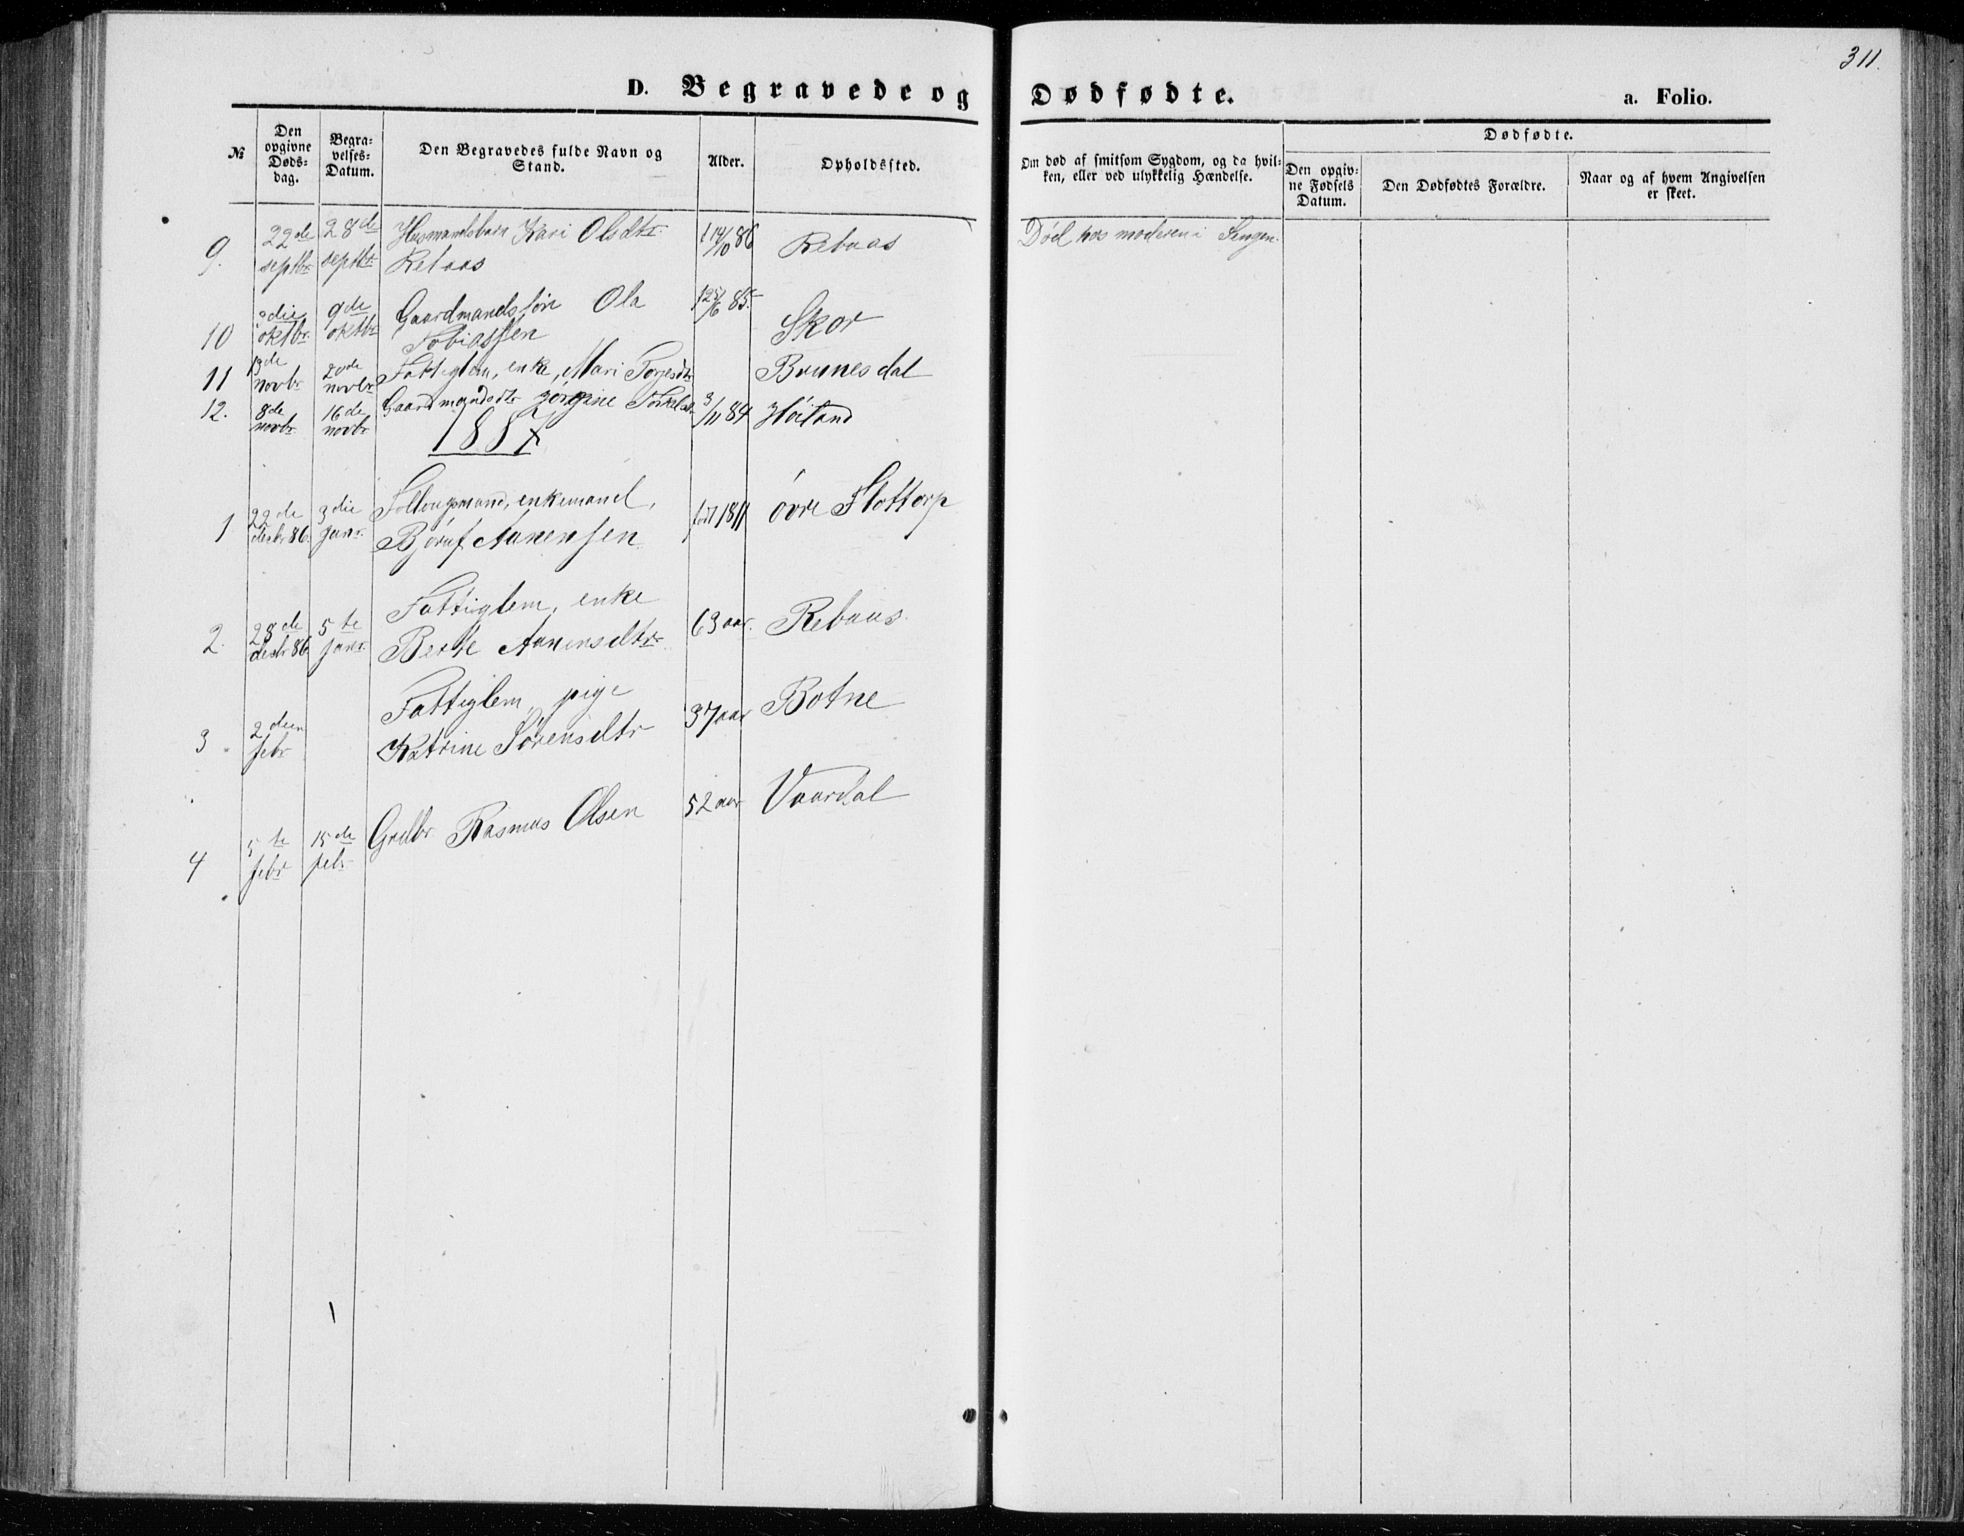 311.
D. Begravede og Dødfødte. a. Folio.
№
Den opgivne Døds-dag.
Begra-velses-Datum.
Den Begravedes fulde Navn og Stand.
Alder.
Opholdssted.
Om død af smitsom Sygdom, og da hvil-ken, eller ved ulykkelig Hændelse.
Dødfødte.
Den opgiv-ne Fødsels Datum.
Den Dødfødtes Forældre.
Naar og af hvem Angivelsen er skeet.
9. 22de septbr 28de septbr Husmandsbarn Kari Olsdtr. Rebaas 86 Rebaas Død hos moderen i Sengen.
10 oktbr. 9de oktbr Gaardmandsøn Ola Tobiassen 85. Skor
11 13de novbr 20de novbr Fattiglem, enke, Mari Torjesdtr Brunesdal
12. 8de novbr 16de novbr Gaardmandsdtr Jörgine Torkelsdtr 3/11 84 Höiland
1887
1 22de desbr 86. 3die janr. Follaugsmand, enkemand, Björuf Aanensen født 1811 övre Flottorp
2. 28de desbr 86 5te janr. Fattiglem, enke Berte Aanensdtr 63 aar. Rebaas.
3 2den febr Fattiglem, pige Katrine Sörensdtr 37 aar Botne
4 5te febr 15de febr Grdbr Rasmus Olsen 52 aar Vaardal